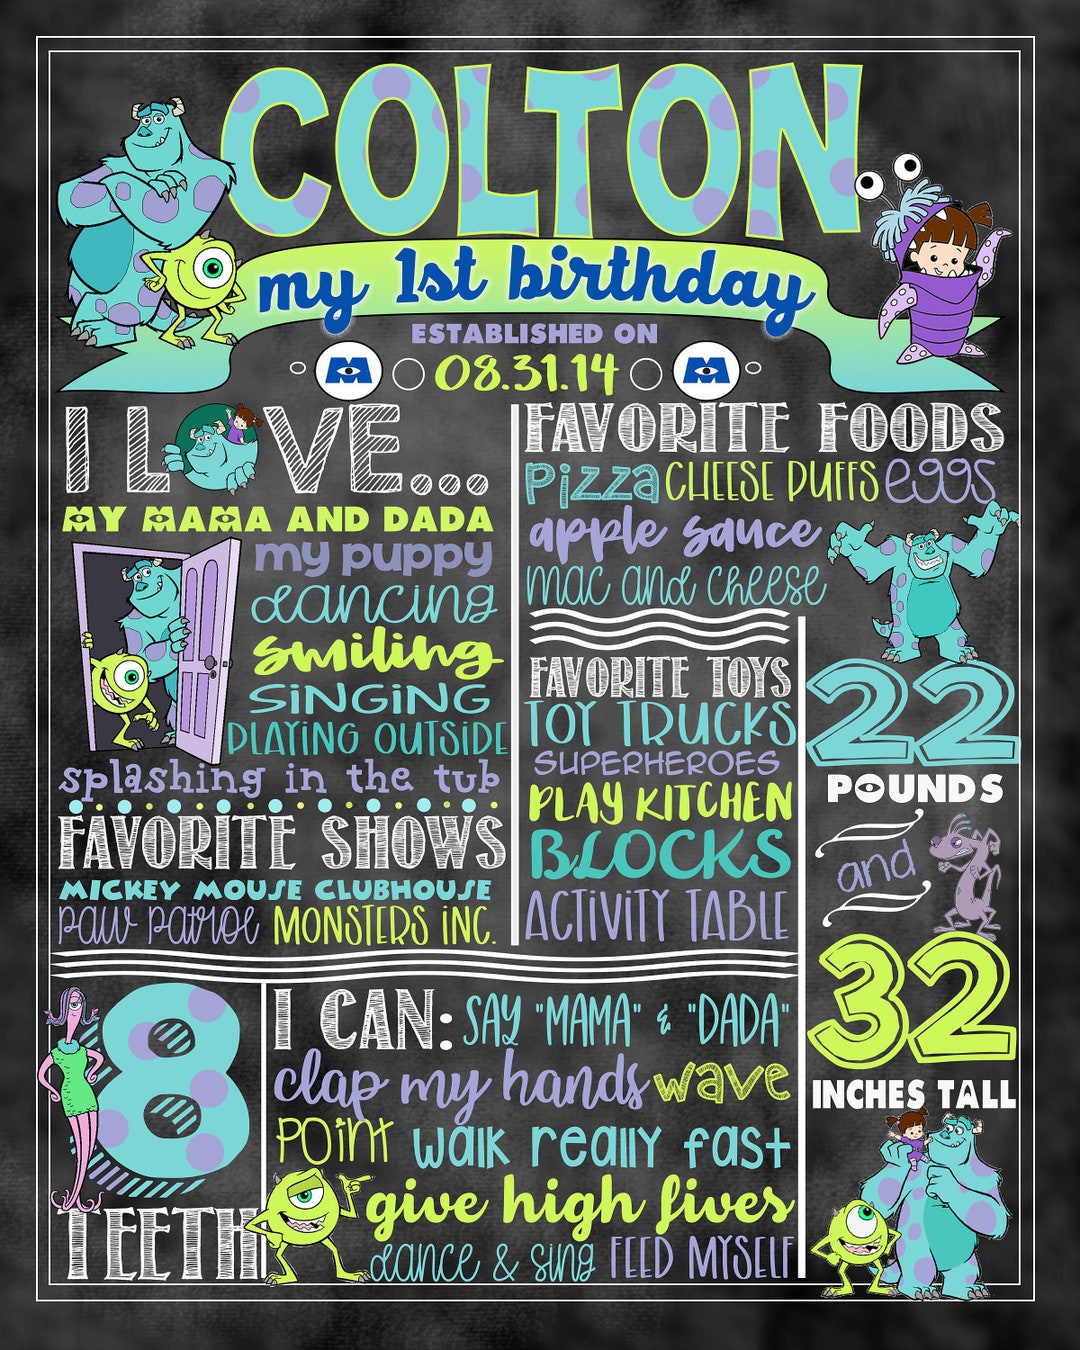 COLTON
my 1st birthday
ESTABLISHED ON
08.31.14
I LOVE...
MY MAMA AND DADA
my puppy
dancing
smiling
SINGING
PLAYING OUTSIDE
splashing in the tub
FAVORITE SHOWS
MICKEY MOUSE CLUBHOUSE
PAW PATROL MONSTERS INC.
FAVORITE FOODS
Pizza CHEESE PUFFS eggs
apple sauce
mac and cheese
FAVORITE TOYS
TOY TRUCKS
SUPERHEROES
PLAY KITCHEN
BLOCKS
ACTIVITY TABLE
22
POUNDS
and
32
INCHES TALL
8
TEETH
I CAN: SAY "MAMA" & "DADA"
clap my hands wave
POINT walk really fast
give high fives
dance & sing FEED MYSELF